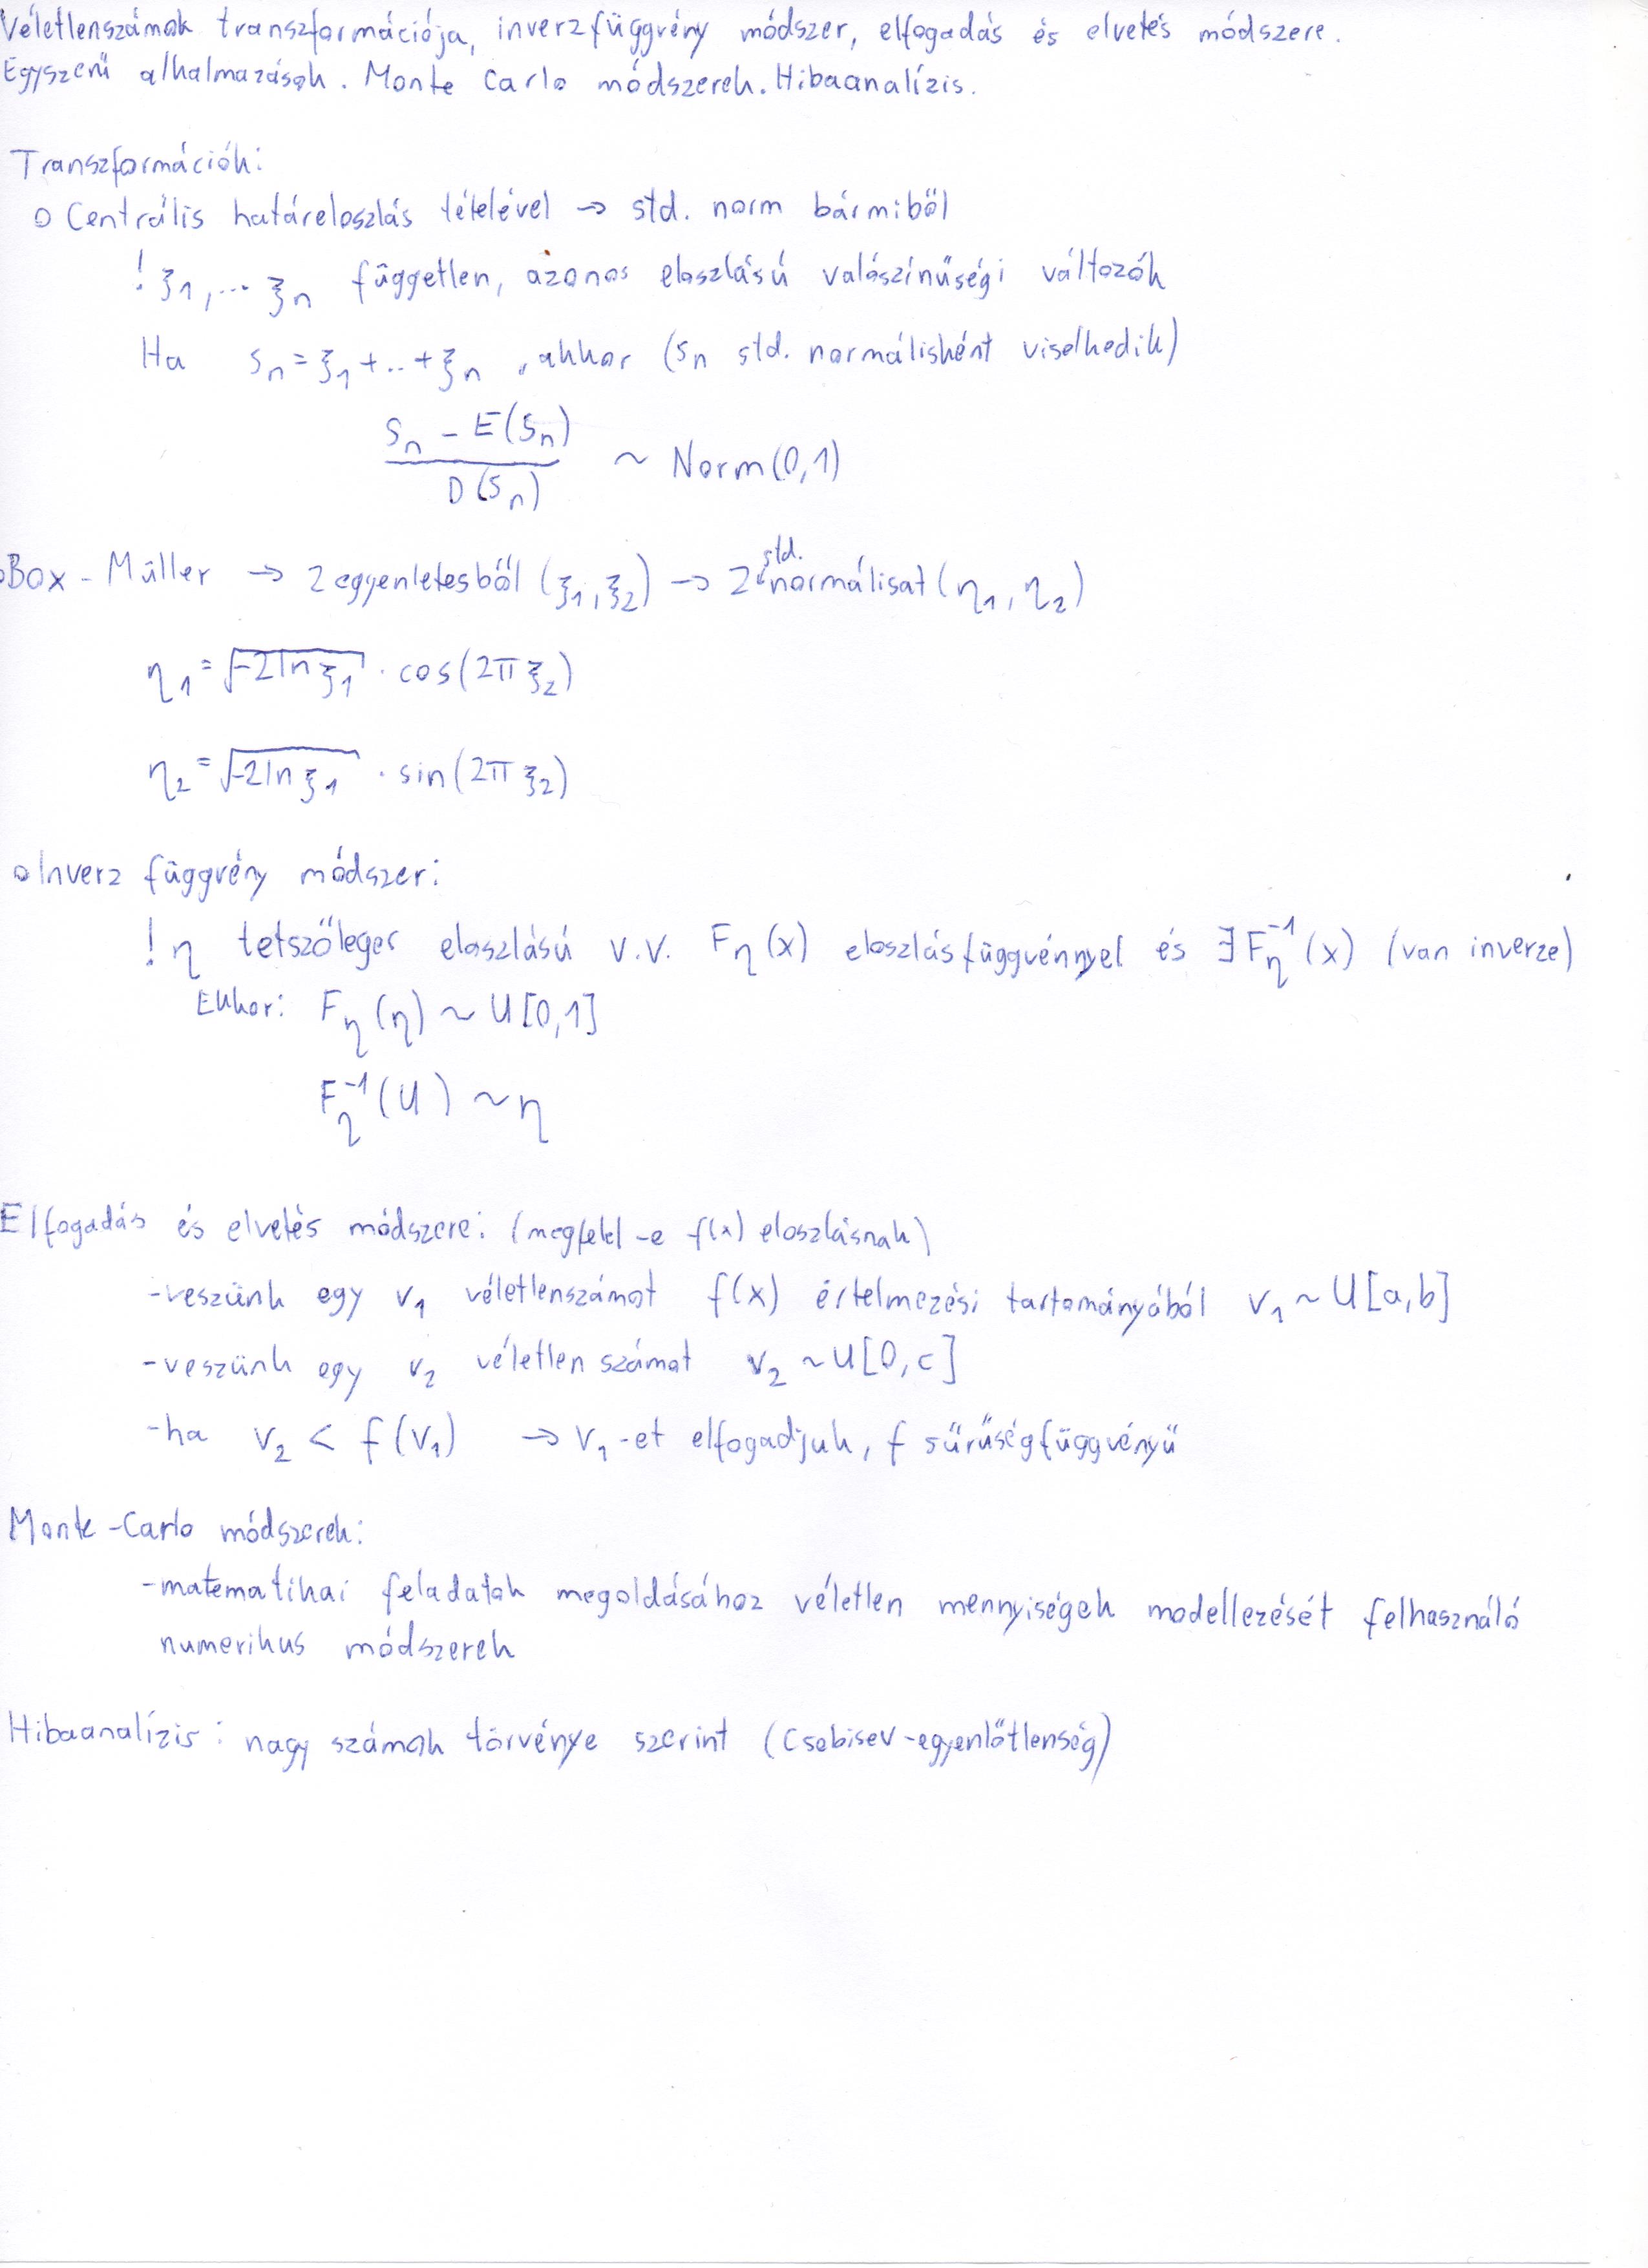 Véletlenszámok transzformációja, inverzfüggvény módszer, elfogadás és elvetés módszere.
Egyszerű alkalmazások. Monte Carlo módszerek. Hibaanalízis.
Transzformációk:
o Centrális határeloszlás tételével → std. norm bármiből
! ξ₁, ... ξₙ független, azonos eloszlású valószínűségi változók
Ha sₙ = ξ₁ + .. + ξₙ , akkor (sₙ std. normálisként viselkedik)
(sₙ - E(sₙ)) / D(sₙ) ~ Norm(0,1)
o Box - Müller → 2 egyenletesből (ξ₁, ξ₂) → 2 std. normálisat (η₁, η₂)
η₁ = √(-2 ln ξ₁) · cos(2π ξ₂)
η₂ = √(-2 ln ξ₁) · sin(2π ξ₂)
o Inverz függvény módszer:
! η tetszőleger eloszlású v.v. F_η(x) eloszlásfüggvénnyel és ∃ F_η⁻¹(x) (van inverze)
Ekkor: F_η(η) ~ U[0,1]
F_η⁻¹(U) ~ η
Elfogadás és elvetés módszere: (megfelel-e f(x) eloszlásnak)
-veszünk egy v₁ véletlenszámot f(x) értelmezési tartományából v₁ ~ U[a,b]
-veszünk egy v₂ véletlen számot v₂ ~ U[0,c]
-ha v₂ < f(v₁) → v₁-et elfogadjuk, f sűrűségfüggvényű
Monte-Carlo módszerek:
-matematikai feladatok megoldásához véletlen mennyiségek modellezését felhasználó
numerikus módszerek
Hibaanalízis: nagy számok törvénye szerint (Csebisev-egyenlőtlenség)